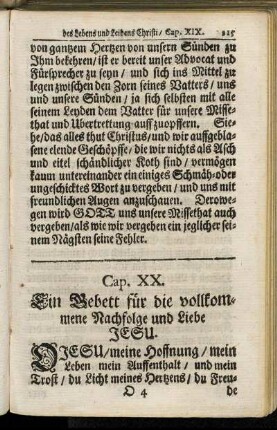 des Lebens und Leidens Christi / Cap. XIX. 215
von gantzem Hertzen von unsern Sünden zu
Ihm bekehren / ist er bereit unser Advocat und
Fürsprecher zu seyn / und sich ins Mittel zu
legen zwischen den Zorn seines Vatters / uns
und unsere Sünden / ja sich selbsten mit alle
seinem Leyden dem Vatter für unsere Misse-
that und Ubertrettung auffzuopffern. Sie-
he / das alles thut Christus / und wir auffgebla-
sene elende Geschöpffe / die wir nichts als Asch
und eitel schändlicher Koth sind / vermögen
kaum untereinander ein einiges Schmäh- oder
ungeschicktes Wort zu vergeben / und uns mit
freundlichen Augen anzuschauen. Derowe-
gen wird GOTT uns unsere Missethat auch
vergeben / als wie wir vergeben ein jeglicher sei-
nem Nägsten seine Fehler.
Cap. XX.
Ein Gebett für die vollkom-
mene Nachfolge und Liebe
JESU.
O JESU / meine Hoffnung / mein
Leben mein Auffenthalt / und mein
Trost / du Licht meines Hertzens / du Freu-
O 4 de